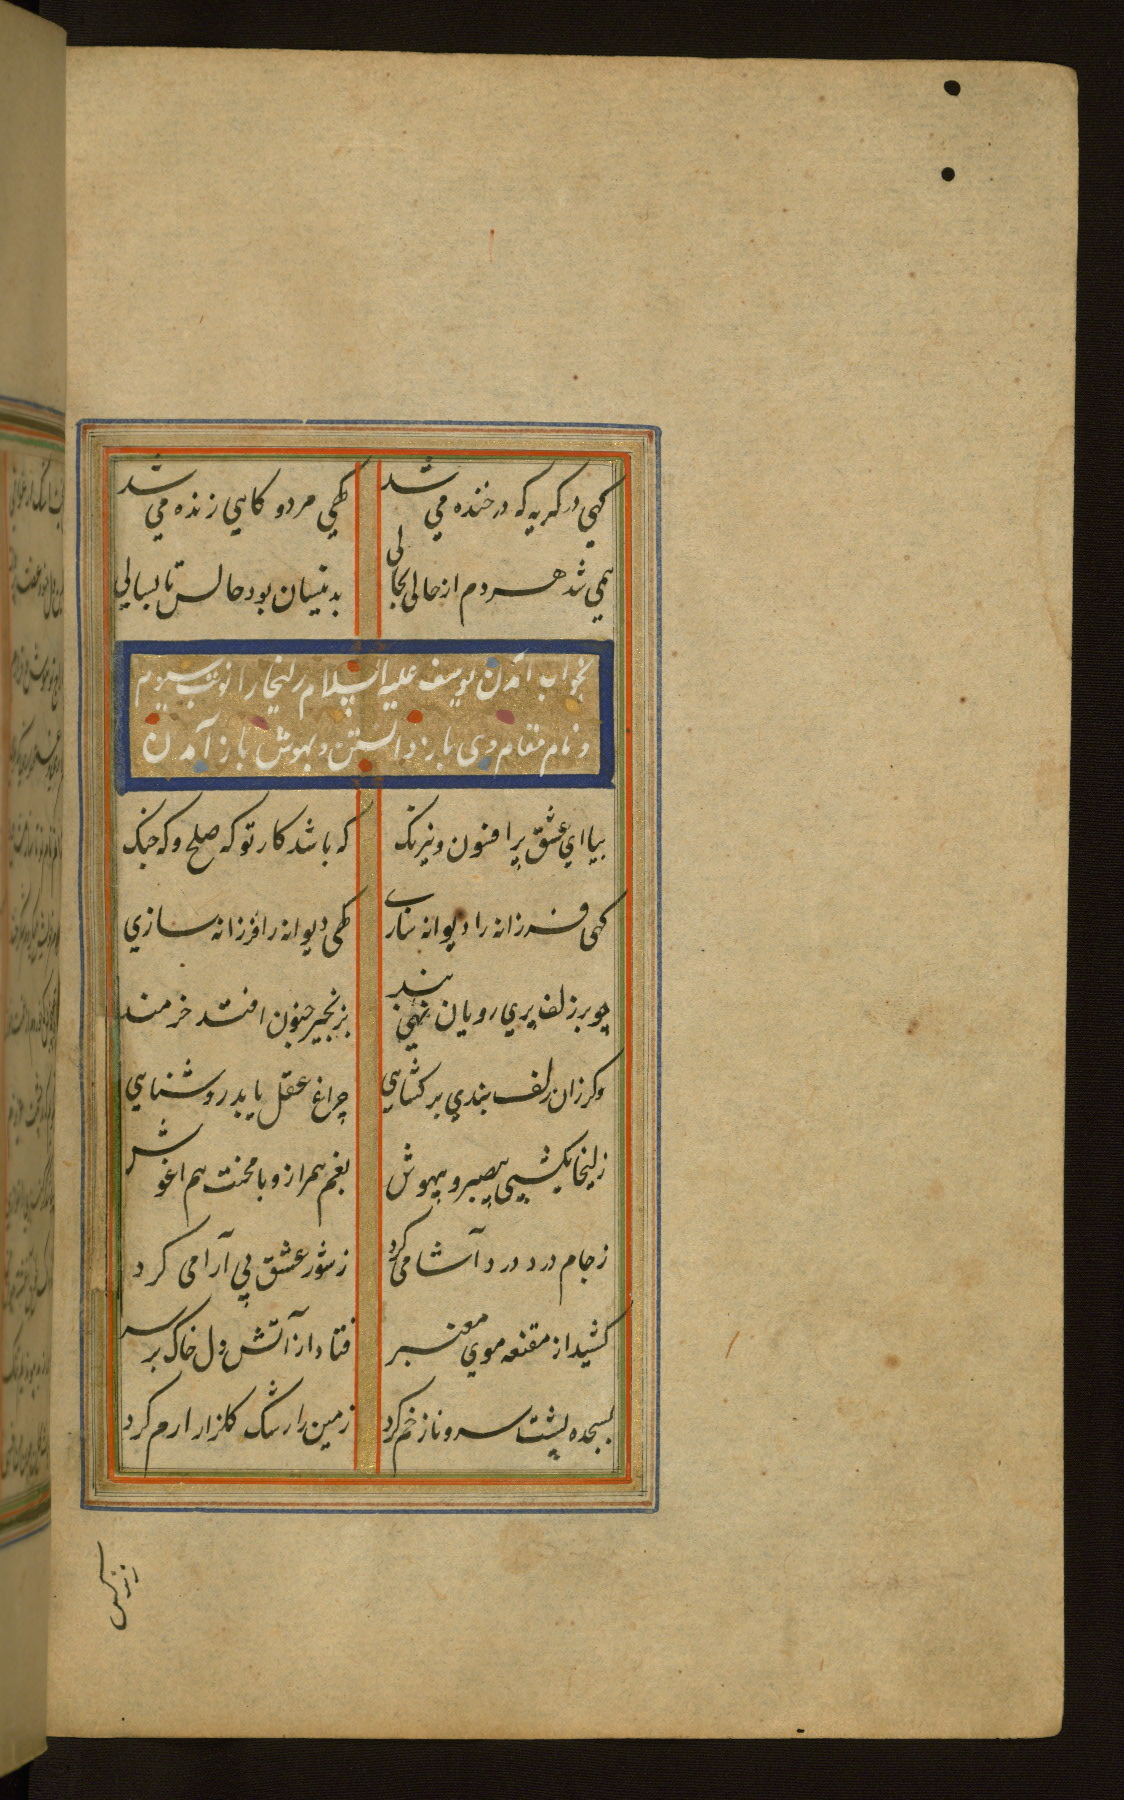 كهي در كريه كه در خنده مي شد كهي مرد و كاهي زنده مي شد
همي شد هر دم از حالي بحالي بدينسان بود حالش تا بسالي
بخواب آمدن يوسف عليه السلام زليخا را نوبت سيوم
و نام مقام وى باز دانستن و بهوش باز آمدن
بيا اي عشق پر افسون و نيرنك كه باشد كار تو كه صلح و كه جنك
كهى فرزانه را ديوانه سازي كهى ديوانه را فرزانه سازي
چو بر زلف پري رويان نهي بند بزنجير جنون افتد خردمند
وكر زان زلف بندي بر كشاهي چراغ عقل يابد روشناهي
زليخا يكشبي بيصبر و بيهوش بغم همراز و با محنت هم اغوش
ز جام درد درد آشامى كرد ز شور عشق بي آرامى كرد
كشيد از مقنعه موي معنبر فتاد از آتش دل خاك بر سر
بسجده پشت سرو ناز خم كرد زمين را رشك كلزار ارم كرد
ز نركس